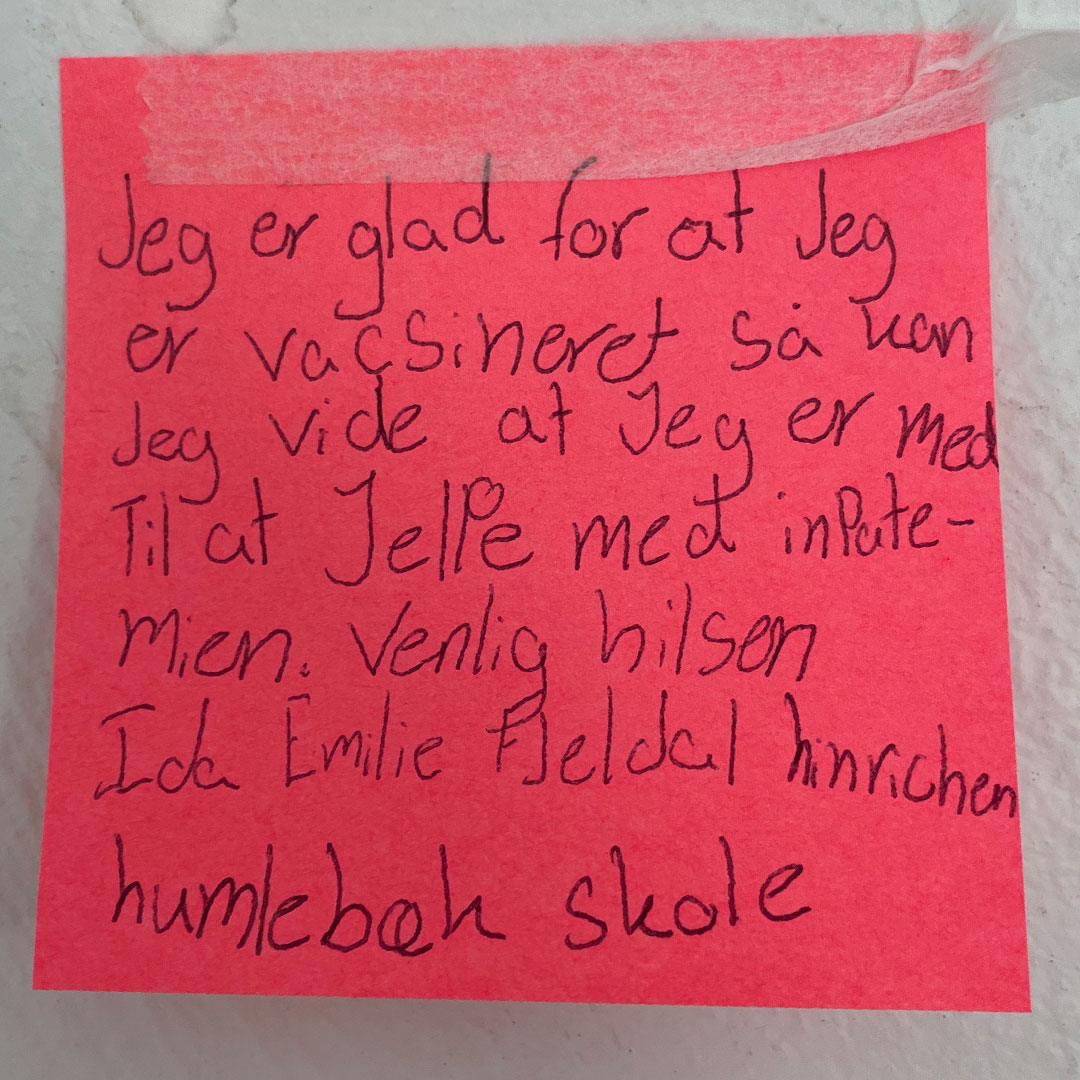 Jeg er glad for at Jeg
er vacsineret så kan
Jeg vide at Jeg er med
Til at Jelpe med inPate-
mien. Venlig hilsen
Ida Emilie Fjeldal hinrichen
humlebæk skole